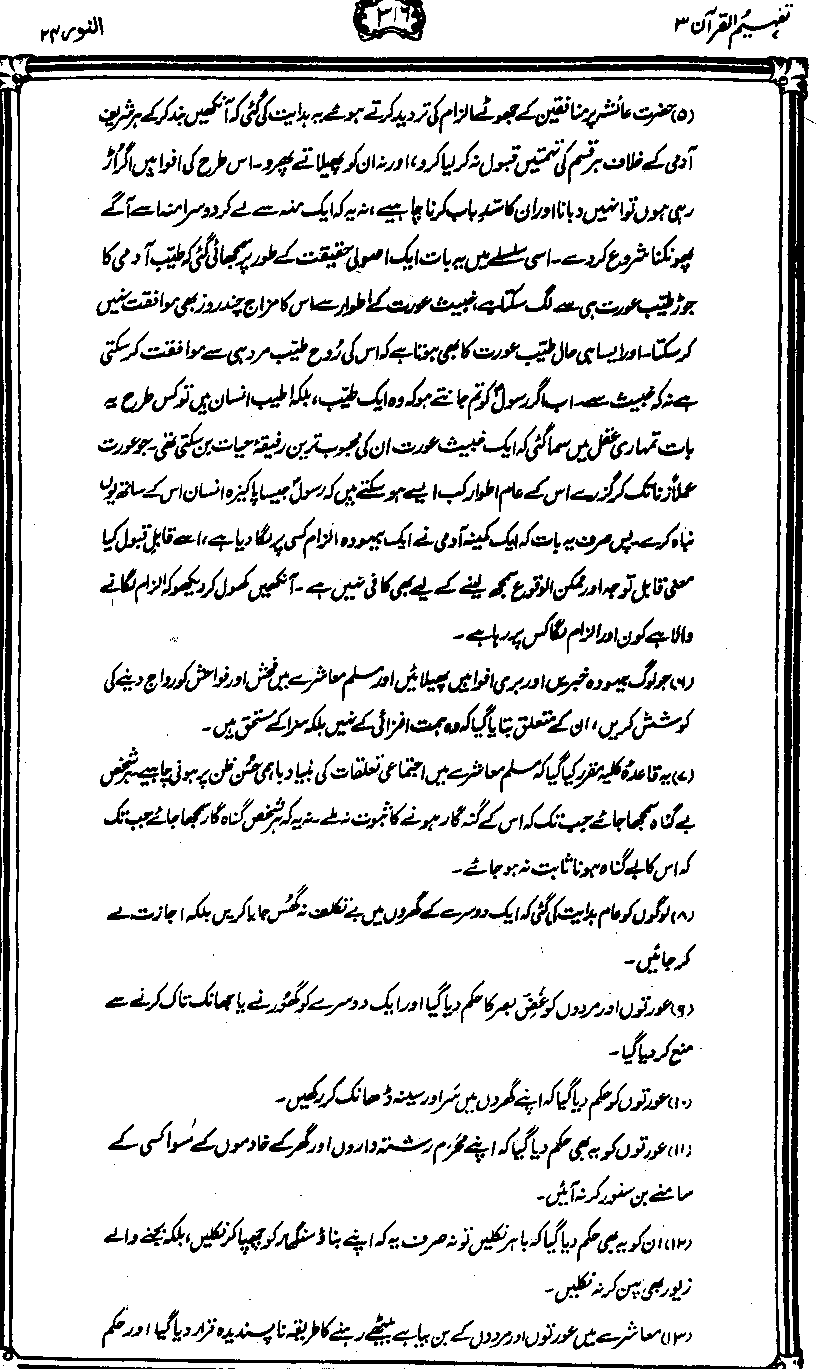 تفہیم القرآن ۳
۳۱۶
النور ۲۴
(۵) حضرت عائشہ پر منافقین کے جھوٹے الزام کی تردید کرتے ہوئے یہ ہدایت کی گئی کہ آنکھیں بند کر کے ہر شریف
آدمی کے خلاف ہر قسم کی تہمتیں قبول نہ کر لیا کرو، اور نہ ان کو پھیلاتے پھرو۔ اس طرح کی افواہیں اگر اُڑ
رہی ہوں تو انہیں دبانا اور ان کا سدِّ باب کرنا چاہیے، نہ یہ کہ ایک منہ سے لے کر دوسرا منہ اسے آگے
پھونکنا شروع کر دے۔ اسی سلسلے میں یہ بات ایک اصولی حقیقت کے طور پر سمجھائی گئی کہ طیّب آدمی کا
جوڑ طیّب عورت ہی سے لگ سکتا ہے، خبیث عورت کے اطوار سے اس کا مزاج چند روز بھی موافقت نہیں
کر سکتا۔ اور ایسا ہی حال طیّب عورت کا بھی ہوتا ہے کہ اس کی رُوح طیّب مرد ہی سے موافقت کر سکتی
ہے نہ کہ خبیث سے۔ اب اگر رسولؐ کو تم جانتے ہو کہ وہ ایک طیّب، بلکہ اطیب انسان ہیں تو کس طرح یہ
بات تمہاری عقل میں سما گئی کہ ایک خبیث عورت ان کی محبوب ترین رفیقۂ حیات بن سکتی تھی۔ جو عورت
عملاً زنا تک کر گزرے اس کے عام اطوار کب ایسے ہو سکتے ہیں کہ رسولؐ جیسا پاکیزہ انسان اس کے ساتھ یوں
نباہ کرے۔ پس صرف یہ بات کہ ایک کمینہ آدمی نے ایک بیہودہ الزام کسی پر لگا دیا ہے، اسے قابلِ قبول کیا
معنی قابل توجہ اور ممکن الوقوع سمجھ لینے کے لیے بھی کافی نہیں ہے۔ آنکھیں کھول کر دیکھو کہ الزام لگانے
والا ہے کون اور الزام لگا کس پر رہا ہے۔
(۶) جو لوگ بیہودہ خبریں اور بری افواہیں پھیلائیں اور مسلم معاشرے میں فحش اور فواحش کو رواج دینے کی
کوشش کریں، ان کے متعلق بتایا گیا کہ وہ ہمت افزائی کے نہیں بلکہ سزا کے مستحق ہیں۔
(۷) یہ قاعدۂ کلیہ مقرر کیا گیا کہ مسلم معاشرے میں اجتماعی تعلقات کی بنیاد باہمی حُسنِ ظن پر ہونی چاہیے۔ ہر شخص
بے گناہ سمجھا جائے جب تک کہ اس کے گنہ گار ہونے کا ثبوت نہ ملے۔ نہ یہ کہ ہر شخص گناہ گار سمجھا جائے جب تک
کہ اس کا بے گناہ ہونا ثابت نہ ہو جائے۔
(۸) لوگوں کو عام ہدایت کی گئی کہ ایک دوسرے کے گھروں میں بے تکلف نہ گھُس جایا کریں بلکہ اجازت لے
کر جائیں۔
(۹) عورتوں اور مردوں کو غضِّ بصر کا حکم دیا گیا اور ایک دوسرے کو گھُورنے یا جھانک تاک کرنے سے
منع کر دیا گیا۔
(۱۰) عورتوں کو حکم دیا گیا کہ اپنے گھروں میں سَر اور سینہ ڈھانک کر رکھیں۔
(۱۱) عورتوں کو یہ بھی حکم دیا گیا کہ اپنے محْرَم رشتہ داروں اور گھر کے خادموں کے سوا کسی کے
سامنے بن سنور کر نہ آئیں۔
(۱۲) ان کو یہ بھی حکم دیا گیا کہ باہر نکلیں تو نہ صرف یہ کہ اپنے بناؤ سنگھار کو چھپا کر نکلیں، بلکہ بجنے والے
زیور بھی پہن کر نہ نکلیں۔
(۱۳) معاشرے میں عورتوں اور مردوں کے بن بیاہے بیٹھے رہنے کا طریقہ ناپسندیدہ قرار دیا گیا اور حکم